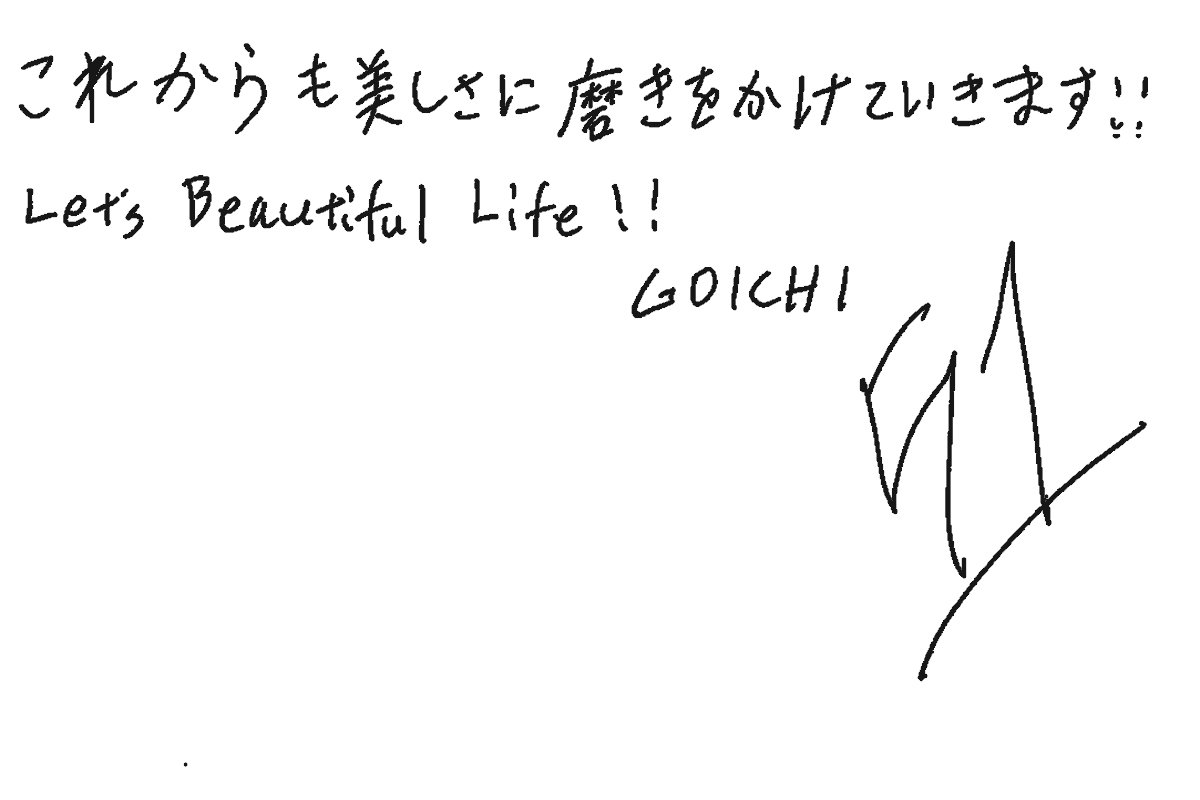 これからも美しさに磨きをかけていきます!!
Let's Beautiful Life !!
GOICHI